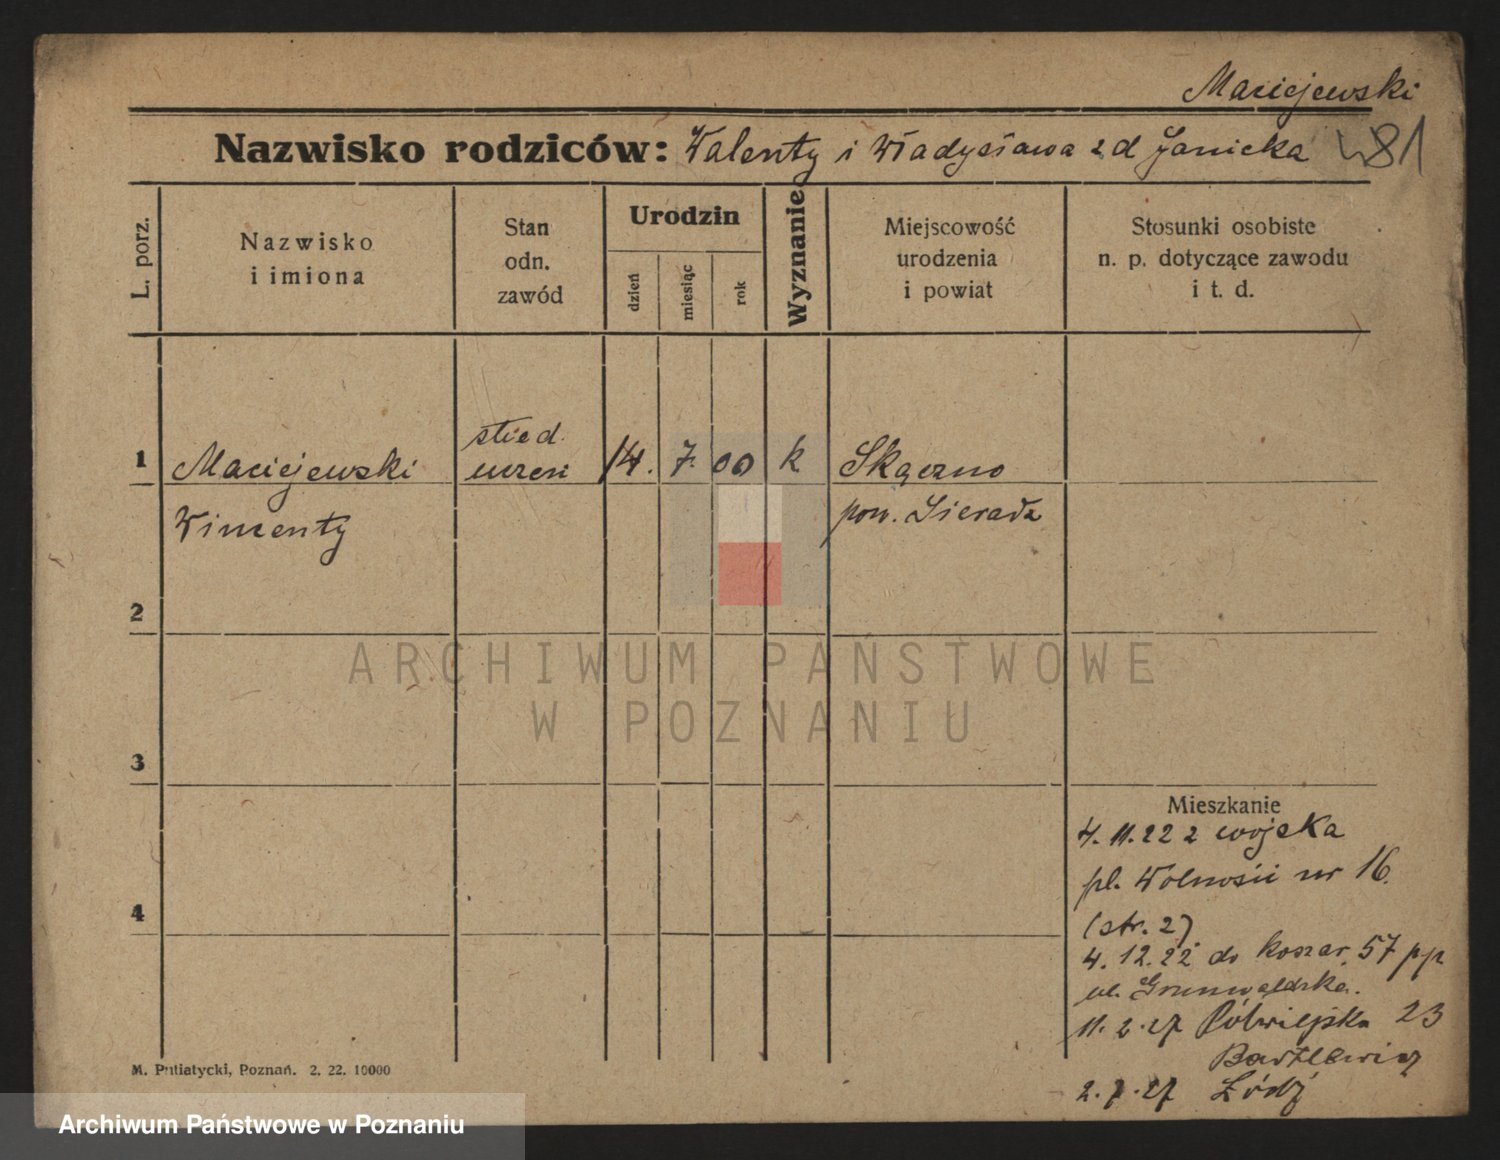 Maciejewski
Nazwisko rodziców: Walenty i Władysława z d Janicka
481
L. porz.
Nazwisko
i imiona
Stan
odn.
zawód
Urodzin
dzień
miesiąc
rok
Wyznanie
Miejscowość
urodzenia
i powiat
Stosunki osobiste
n. p. dotyczące zawodu
i t. d.
1
Maciejewski
Wincenty
uczeń
14. 7. 00
k
Skęczno
pow. Sieradz
2
ARCHIWUM PAŃSTWOWE
W POZNANIU
3
4
Mieszkanie
4. 11. 22 z wojska
pl. Wolności nr 16.
(str. 2)
4. 12. 22 do koszar 57 pp
ul. Grunwaldzka.
11. 2. 27 Półwiejska 23
2. 7. 27 Łódź
M. Putiatycki, Poznań. 2. 22. 10000
Archiwum Państwowe w Poznaniu